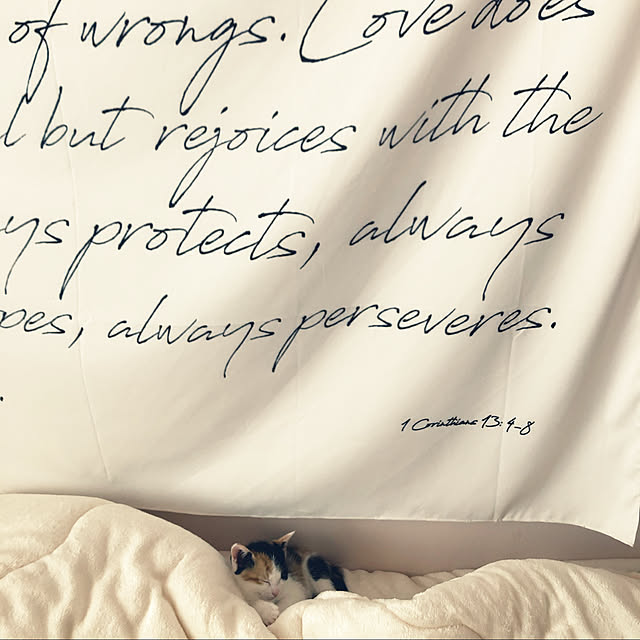 of wrongs. Love does
l but rejoices with the
ys protects, always
pes, always perseveres.
.
1 Corinthians 13:4-8